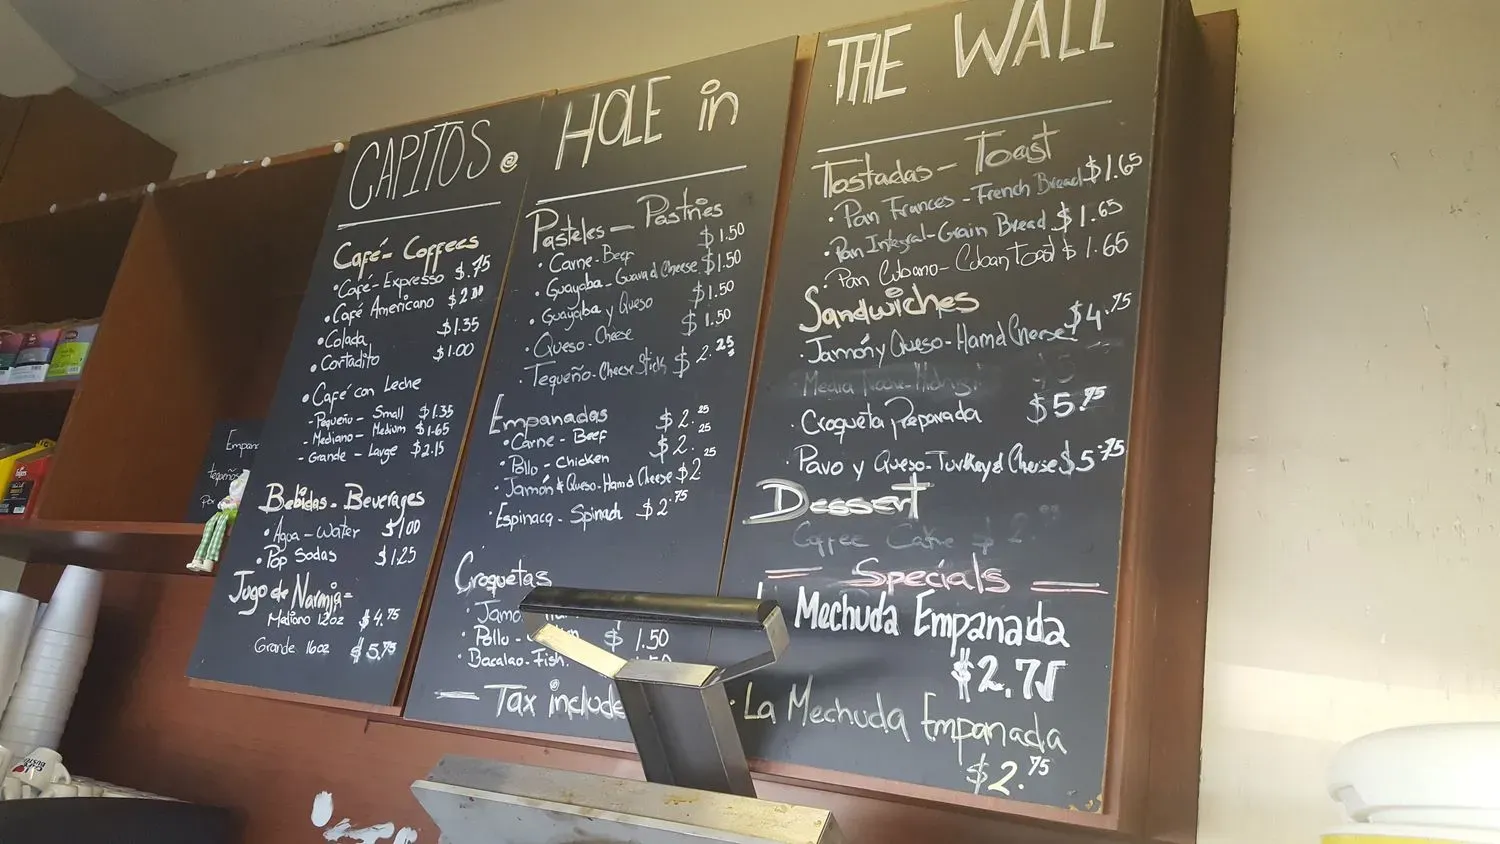 CAPITOS.
Café - Coffees
• Café - Expresso $.75
• Café Americano $2.00
• Colada $1.35
• Cortadito $1.00
• Café con Leche
- Pequeño - Small $1.35
- Mediano - Medium $1.65
- Grande - Large $2.15
Bebidas - Beverages
• Agua - Water $1.00
• Pop Sodas $1.25
Jugo de Naranja -
Mediano 12oz $4.75
Grande 16oz $5.75
HOLE in
Pasteles - Pastries
• Carne - Beef $1.50
• Guayaba - Guava & Cheese $1.50
• Guayaba y Queso $1.50
• Queso - Cheese $1.50
• Tequeño - Cheese Stick $2.25
Empanadas $2.25
• Carne - Beef $2.25
• Pollo - Chicken
• Jamón & Queso - Ham & Cheese $2.25
• Espinaca - Spinach $2.75
Croquetas
• Pollo - $1.50
• Bacalao - Fish.
- Tax include
THE WALL
Tostadas - Toast
• Pan Frances - French Bread $1.65
• Pan Integral - Grain Bread $1.65
• Pan Cubano - Cuban Toast $1.65
Sandwiches
• Jamón y Queso - Ham & Cheese $4.75
Media
• Croqueta Preparada $5.75
• Pavo y Queso - Turkey & Cheese $5.75
Dessert
Coffee Cake $2.
Specials
Mechuda Empanada
$2.75
• La Mechuda Empanada
$2.75
Empan
tequeños
Por